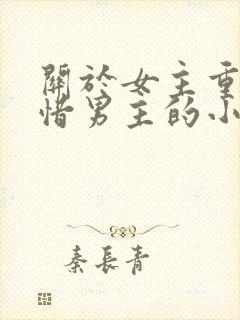 關於女主重
惜男主的小
秦長青